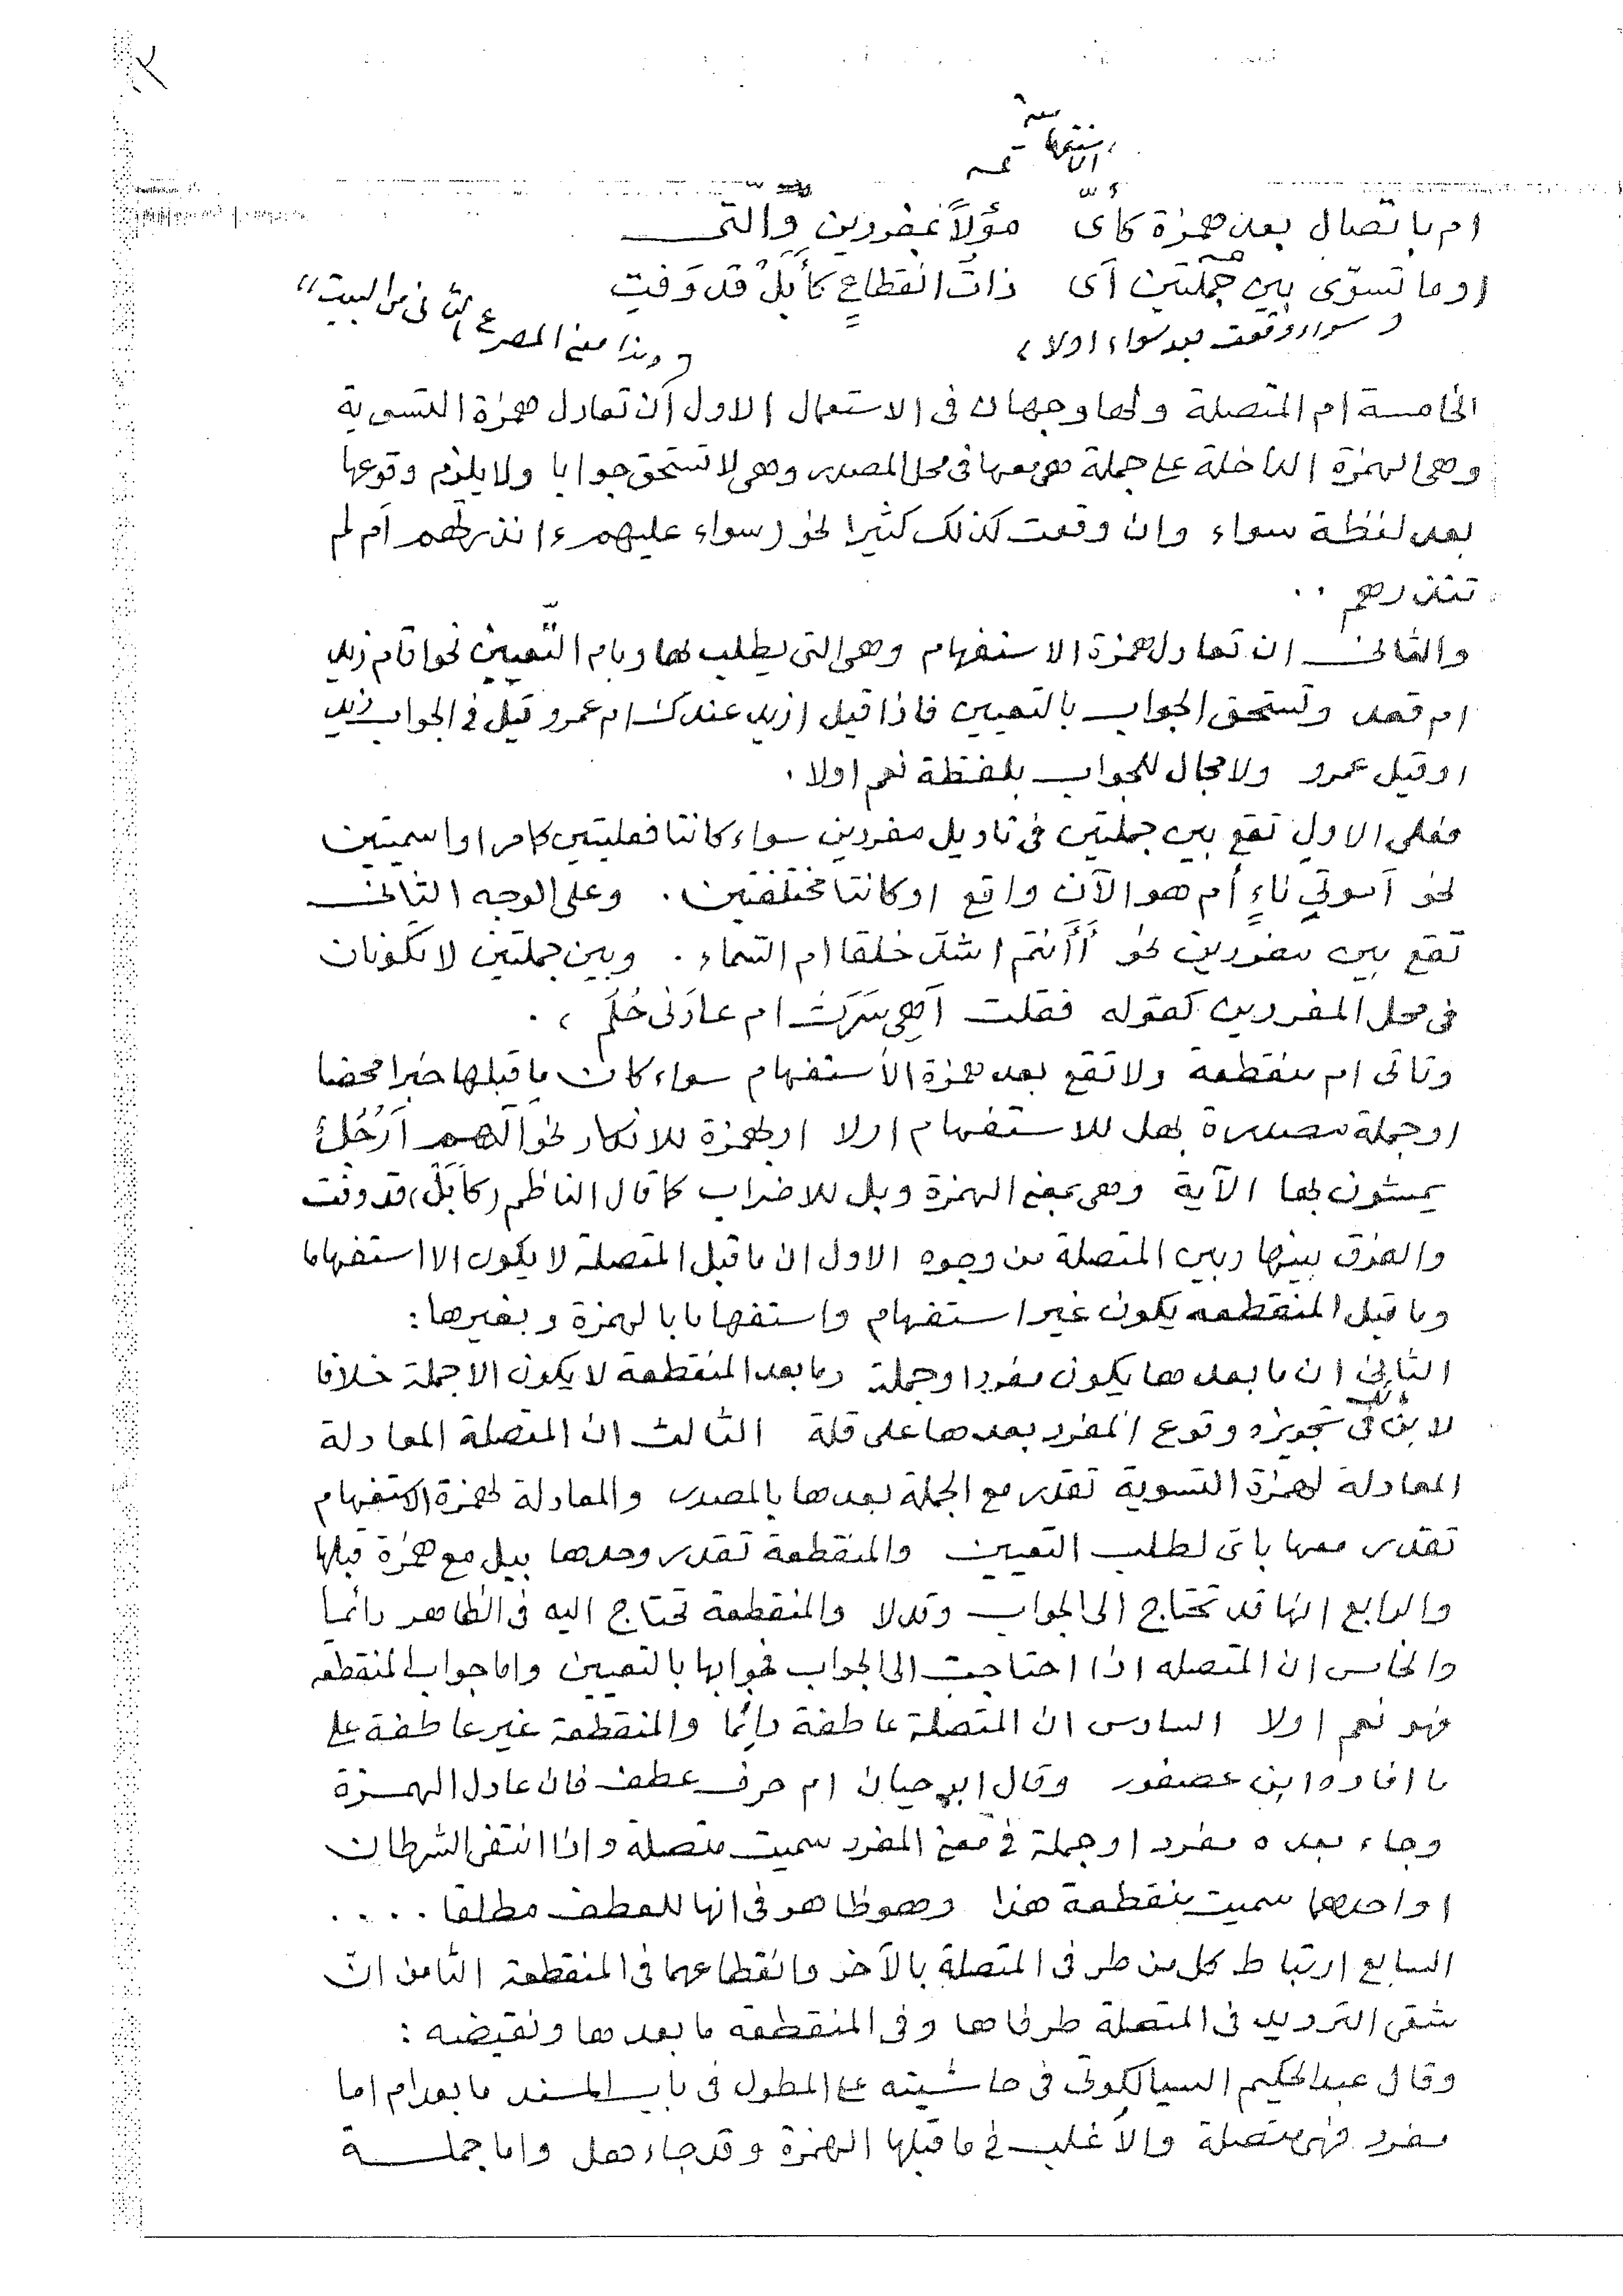 الاستفهامية
ام باتصال بعد همزة كأىّ مؤلاً بمفردين والتى
او ما تسوّى بين جملتين اَى ذات انقطاعٍ كأَبَلْ قد وَفَت
سواء وقعت بعد سواء اولا، وهذا معنى المصرع الثانى من البيت"
الخامسة ام المتصلة ولها وجهان فى الاستعمال الاول اَن تعادل همزة التسوية
وهى الهمزة الداخلة على جملة هى معها فى محل المصدر وهى لا تستحق جوابا ولا يلزم وقوعها
بعد لفظة سواء وان وقعت كذلك كثيرا نحو (سواء عليهم ءانذرتهم اَم لم
تنذرهم ..
والثانى ان تعادل همزة الاستفهام وهى التى يطلب بها وبام التّعيين نحو اقام زيد
ام قعد وتستحق الجواب بالتعيين فاذا قيل ازيد عندك ام عمرو قيل فى الجواب زيد
اوقيل عمرو ولا مجال للجواب بلفظة نعم اولا.
فعلى الاول تقع بين جملتين فى تاويل مفردين سواء كانتا فعليتين كامر او اسميتين
نحو اَموتي ناءٍ أم هو الآن واقع او كانتا مختلفتين. وعلى الوجه الثانى
تقع بين مفردين نحو أَأَنتم اشد خلقا ام السّماء. وبين جملتين لا تكونان
فى محل المفردين كقوله فقلت اَهى سَرَت ام عادَنى حُلُم ، .
وتاتى ام منقطعة ولا تقع بعد همزة الأستفهام سواء كان ما قبلها خبرا محضا
او جملة مصدرة بهل للاستفهام اولا او بهمزة للانكار نحو اَلَهم اَرْجُلٌ
يمشون بها الآية وهى بمعنى الهمزة وبل للاضراب كما قال الناظم (كاَبَلْ) قد وفت
والفرق بينها وبين المتصلة من وجوه الاول ان ما قبل المتصلة لا يكون الا استفهاما
وما قبل المنقطعه يكون غير استفهام واستفهاما بالهمزة وبغيرها:
الثانى ان ما بعدها يكون مفردا وجملة وما بعد المنقطعة لا يكون الا جملة خلافا
لابن مالك فى تجويزه وقوع المفرد بعدها على قلة الثالث ان المتصلة المعادلة
المعادلة لهمزة التسوية تقدر مع الجملة بعدها بالمصدر والمعادلة لهمزة الاستفهام
تقدر معها باى لطلب التعيين والمنقطعة تقدر وحدها ببل مع همزة قبلها
والرابع انها قد تحتاج الى الجواب وقد لا والمنقطعة تحتاج اليه فى الظاهر دائما
والخامس ان المتصله اذا احتاجت الى الجواب فجوابها بالتعيين واما جواب المنقطعه
فهو نعم اولا السادس ان المتصلة عاطفة دائما والمنقطعة غير عاطفة على
ما افاده ابن عصفور وقال ابو حيان ام حرف عطف فان عادل الهمزة
وجاء بعده مفرد او جملة فى معنى المفرد سميت متصلة واذا انتفى الشرطان
او احدهما سميت منقطعة هذا وهو ظاهر فى انها للعطف مطلقا ....
السابع ارتباط كل من طرفى المتصلة بالآخر وانقطاعهما فى المنقطعة الثامن انّ
شقى الترديد فى المتصلة طرفاها وفى المنقطعه ما بعدها ونقيضه :
وقال عبد الحكيم السيالكوتى فى حاشيته على المطول فى باب المسند ما بعد ام اما
مفرد فهى متصلة والأغلب فى ما قبلها الهمزة وقد جاء هل واما جملة